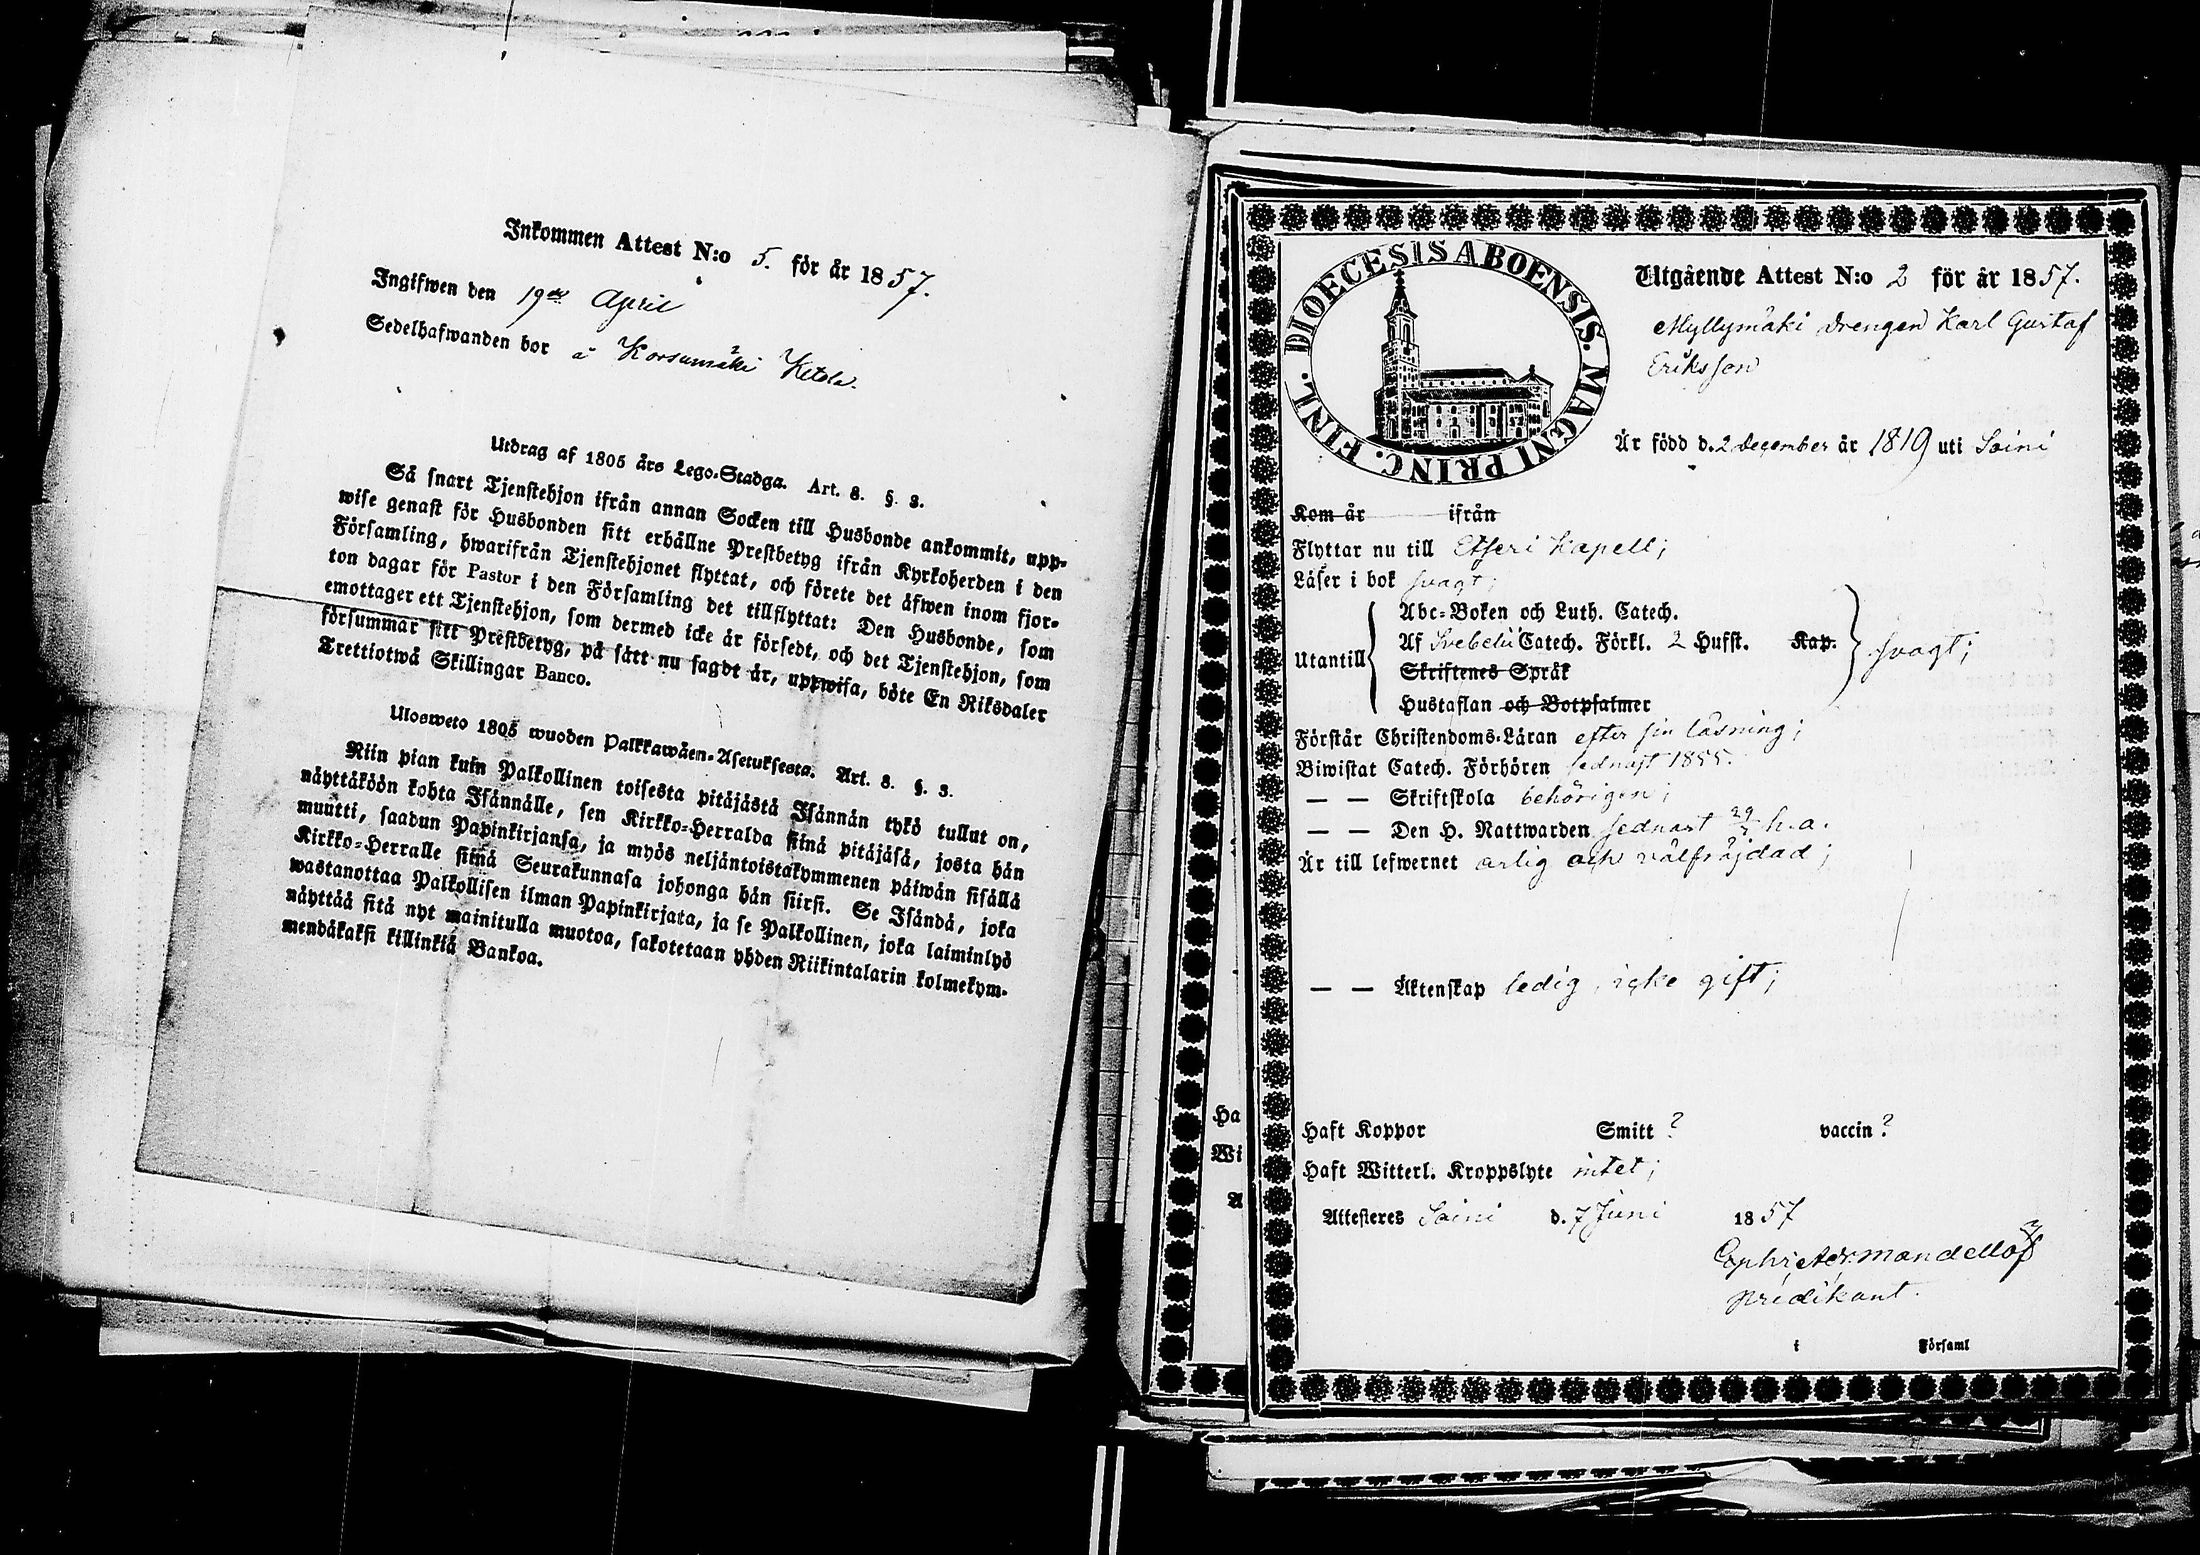 Inkommen Attest N:o 5. för år 1857.
Ingifwen den 19de April
Sedelhafwanden bor å Korsumäki Ketola.
Utdrag af 1805 års Lego-Stadga. Art. 8. §. 3.
Så snart Tjenstehjon ifrån annan Socken till Husbonde ankommit, upp-
wise genast för Husbonden sitt erhållne Prestbetyg ifrån Kyrkoherden i den
Församling, hwarifrån Tjenstehjonet flyttat, och förete det äfwen inom fjor-
ton dagar för Pastor i den Församling det tillflyttat: Den Husbonde, som
emottager ett Tjenstehjon, som dermed icke är försedt, och det Tjenstehjon, som
försummar sitt Prestbetyg, på sätt nu sagdt är, uppwisa, böte En Riksdaler
Trettiotwå Skillingar Banco.
Ulosweto 1805 wuoden Palkkawäen-Asetuksesta. Art. 8. §. 3.
Niin pian kuin Palkollinen toisesta pitäjästä Isännän tykö tullut on,
näyttäköön kohta Isännälle, sen Kirkko-Herralda siinä pitäjäsä, josta hän
muutti, saadun Papinkirjansa, ja myös neljäntoistakymmenen päiwän sisällä
Kirkko-Herralle siinä Seurakunnasa johonga hän siirsi. Se Isändä, joka
wastanottaa Palkollisen ilman Papinkirjata, ja se Palkollinen, joka laiminlyö
näyttää sitä nyt mainitulla muotoa, sakotetaan yhden Riikintalarin kolmekym-
mendäkaksi killinkiä Bankoa.
DIOECESIS ABOENSIS. MAGNI PRINC. FINL.
Utgående Attest N:o 2 för år 1857.
Myllymäki drengen Karl Gustaf
Eriksson
Är född d. 2 december år 1819 uti Soini
Kom år ifrån
Flyttar nu till Etseri Kapell;
Läser i bok svagt;
Abc-Boken och Luth. Catech.
Utantill Af Svebelii Catech. Förkl. 2 Hufst. Kap. svagt;
Skriftenes Språk
Hustaflan och Botpsalmer
Förstår Christendoms-Läran efter sin läsning;
Biwistat Catech. Förhören sednast 1855.
— — Skriftskola behörigen;
— — Den H. Nattwarden sednast 29/3 h.a.
Är till lefwernet ärlig och välfräjdad;
— — Äktenskap ledig, icke gift;
Haft Koppor Smitt ? vaccin ?
Haft Witterl. Kroppslyte intet;
Attesteres Soini d. 7 Juni 1857
Mandellöf
predikant.
i Församl
Ha
Wi
A